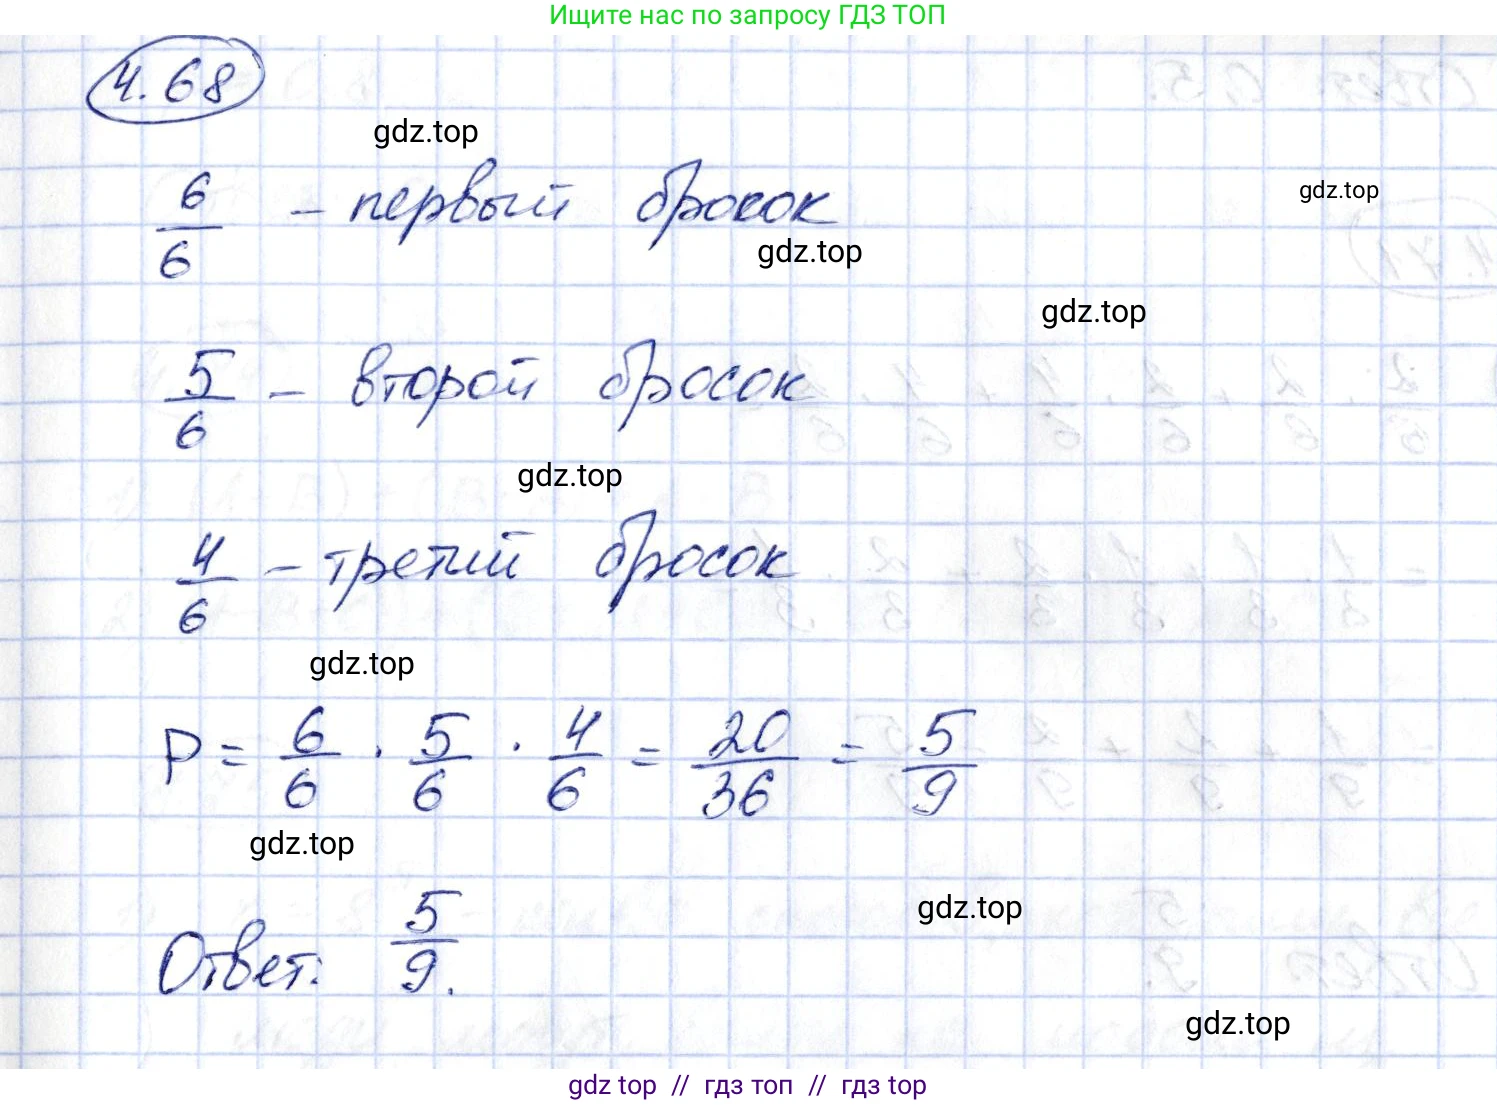 Ищите нас по запросу ГДЗ ТОП
4.68
gdz.top
6/6 – первый бросок
gdz.top
gdz.top
gdz.top
5/6 – второй бросок
gdz.top
4/6 – третий бросок
gdz.top
P = 6/6 · 5/6 · 4/6 = 20/36 = 5/9
gdz.top
gdz.top
Ответ: 5/9.
gdz.top
gdz top // гдз топ // гдз top